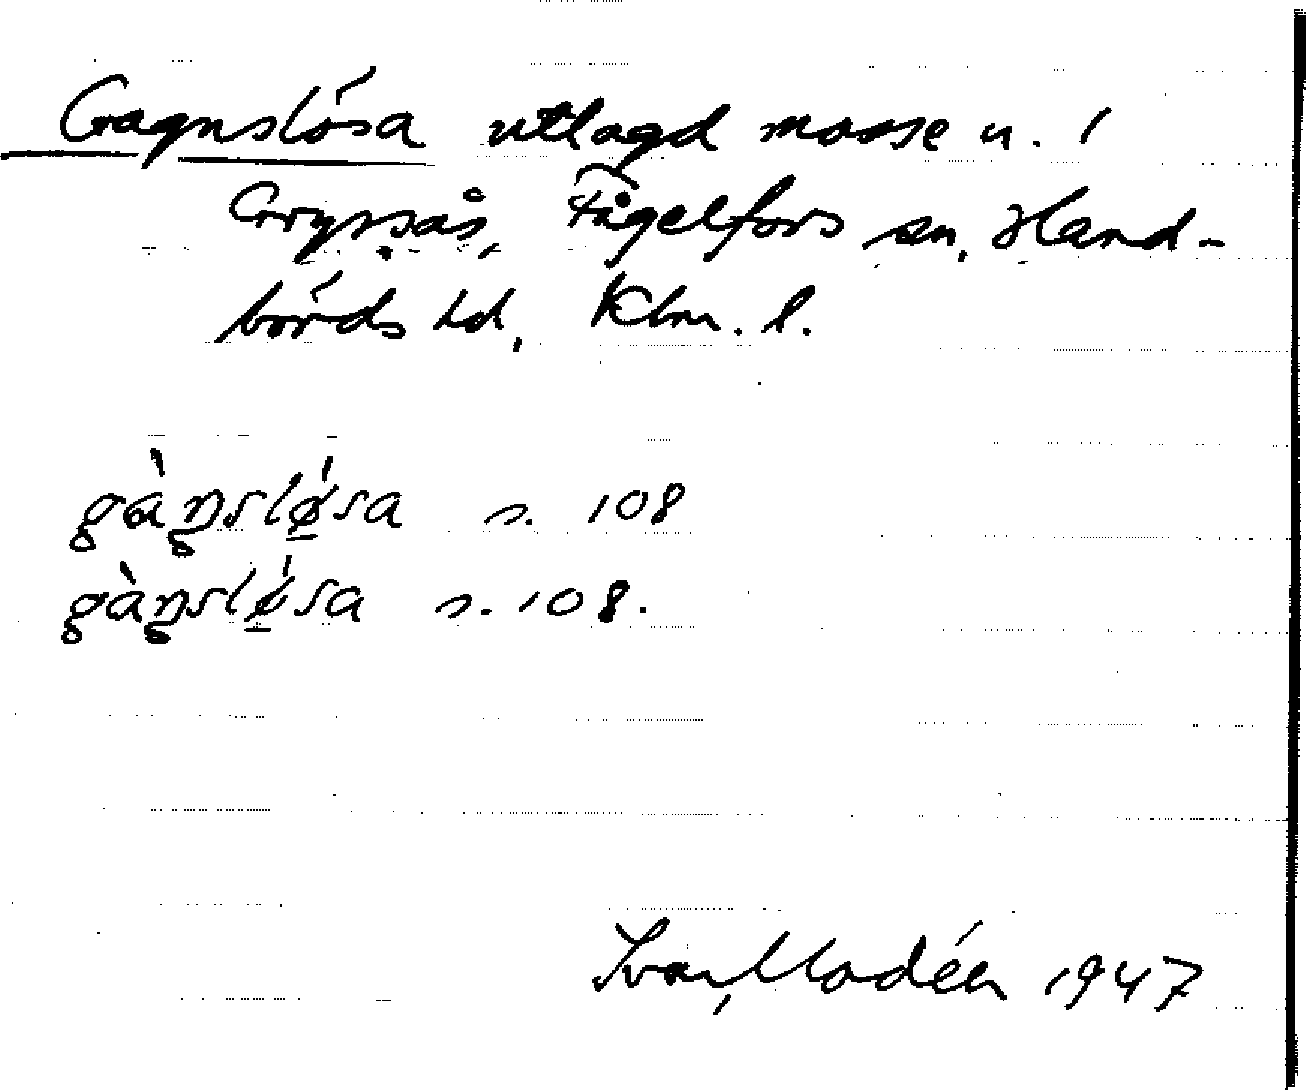 Gagnslösa utlagd mosse u. 1
Gryssås, Fågelfors sn, Hand-
börds hd, Klm. l.
gàŋslǿ̱sa s. 108
gàŋslǿ̱sa s. 108.
Ivar Modéer 1947